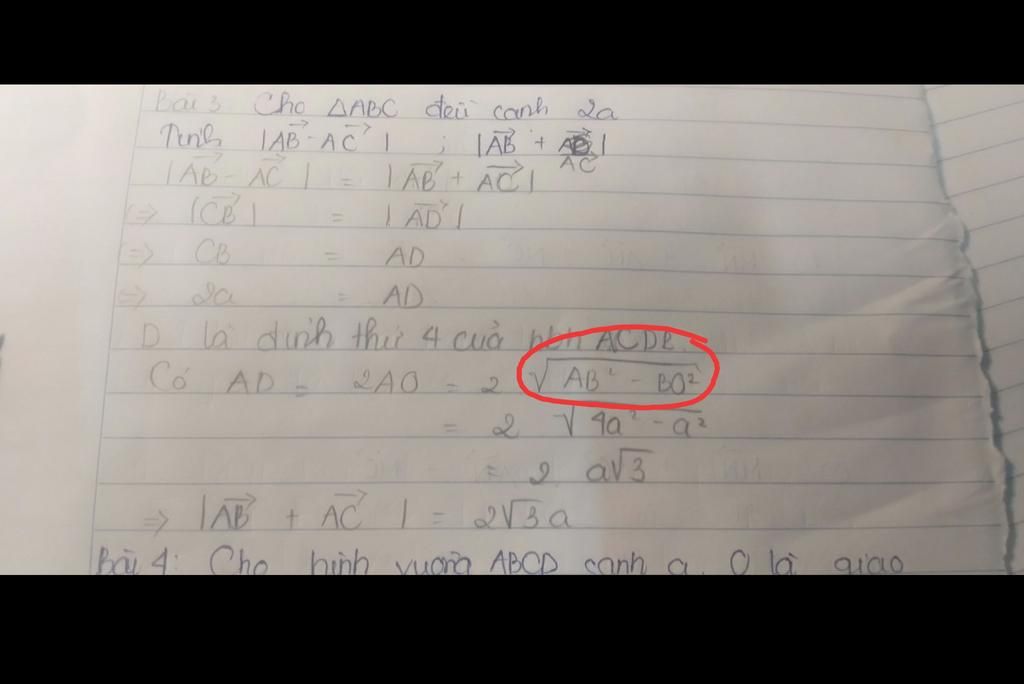 Bài 3 Cho △ABC đều cạnh 2a
Tính |AB→ - AC→| ; |AB→ + AC→|
|AB→ - AC→| = |AB→ + AC→|
=> |CB→| = |AD→|
=> CB = AD
=> 2a = AD
D là đỉnh thứ 4 của hbh ACDB.
Có AD = 2AO = 2 √AB² - BO²
= 2 √4a² - a²
= 2 a√3
=> |AB→ + AC→| = 2√3a
Bài 4: Cho hình vuông ABCD cạnh a, O là giao